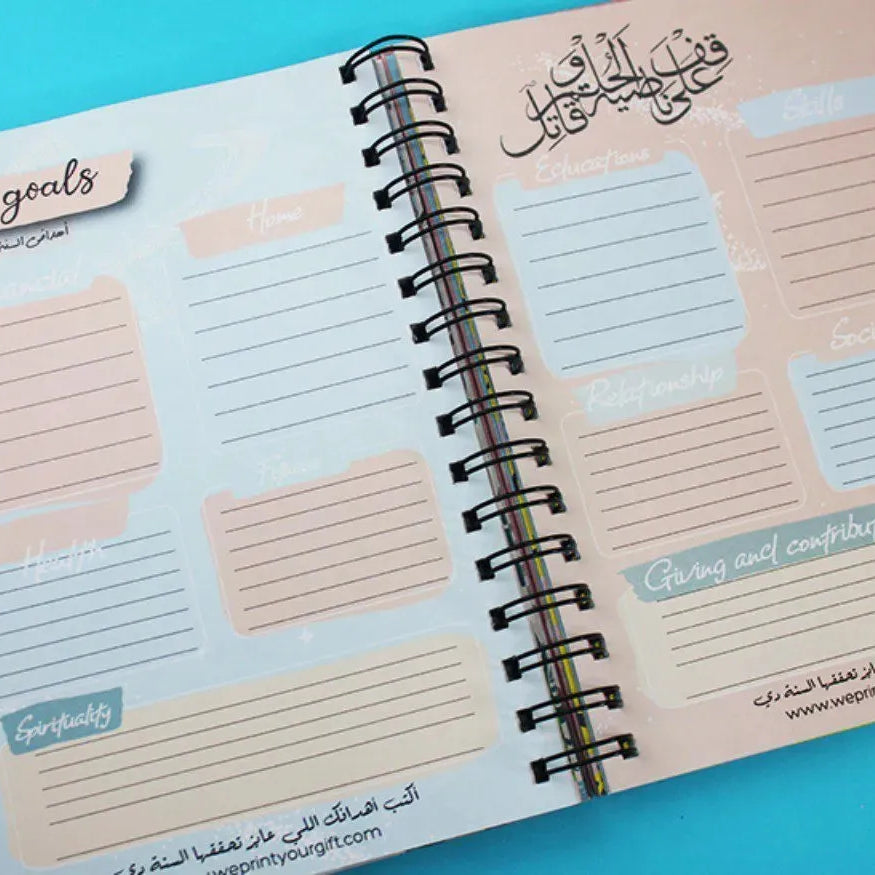 goals
أهدافى السنة
Home
Health
Spirituality
أكتب أهدافك اللي عايز تحققها السنة دي
weprintyourgift.com
قف على ناصية الحلم و قاتل
Educations
Skills
Relationship
Soci
Giving and contribu
تحققها السنة دي
www.weprin